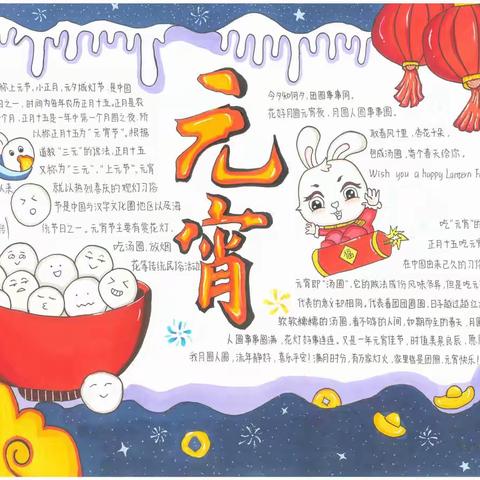 元宵
称上元节,小正月,元夕或灯节,是中国
节日之一,时间为每年农历正月十五,正月是农
个月,正月十五是一年中第一个月圆之夜,所
以称正月十五为“元宵节”。根据
道教“三元”的说法,正月十五
又称为“三元”,“上元节”,元宵
以来
就以热烈喜乐的观灯习俗
节是中国与汉字文化圈地区以及海
传统节日之一,元宵节主要有赏花灯,
吃汤圆,放烟
花等传统民俗活动
今夕如何夕,团圆事事同。
花好月圆元宵夜,月圆人圆事事圆。
取春风十里,杏花十朵,
包成汤圆,每个春天给你。
Wish you a happy Lantern F
吃“元宵”的
正月十五吃元宵
在中国由来已久的习俗
福
元宵即“汤圆”,它的做法成份风味各异,但是吃元
代表的意义却相同,代表着团团圆圆,日子越过越红
软软糯糯的汤圆,看不够的人间,如期而至的春天,月圆
人圆事事圆满,花灯好事连连。又是一年元宵佳节,时值美景良辰,愿
我月圆人圆,流年静好,喜乐平安!满月时分,有万家灯火,家里皆是团照,元宵快乐!